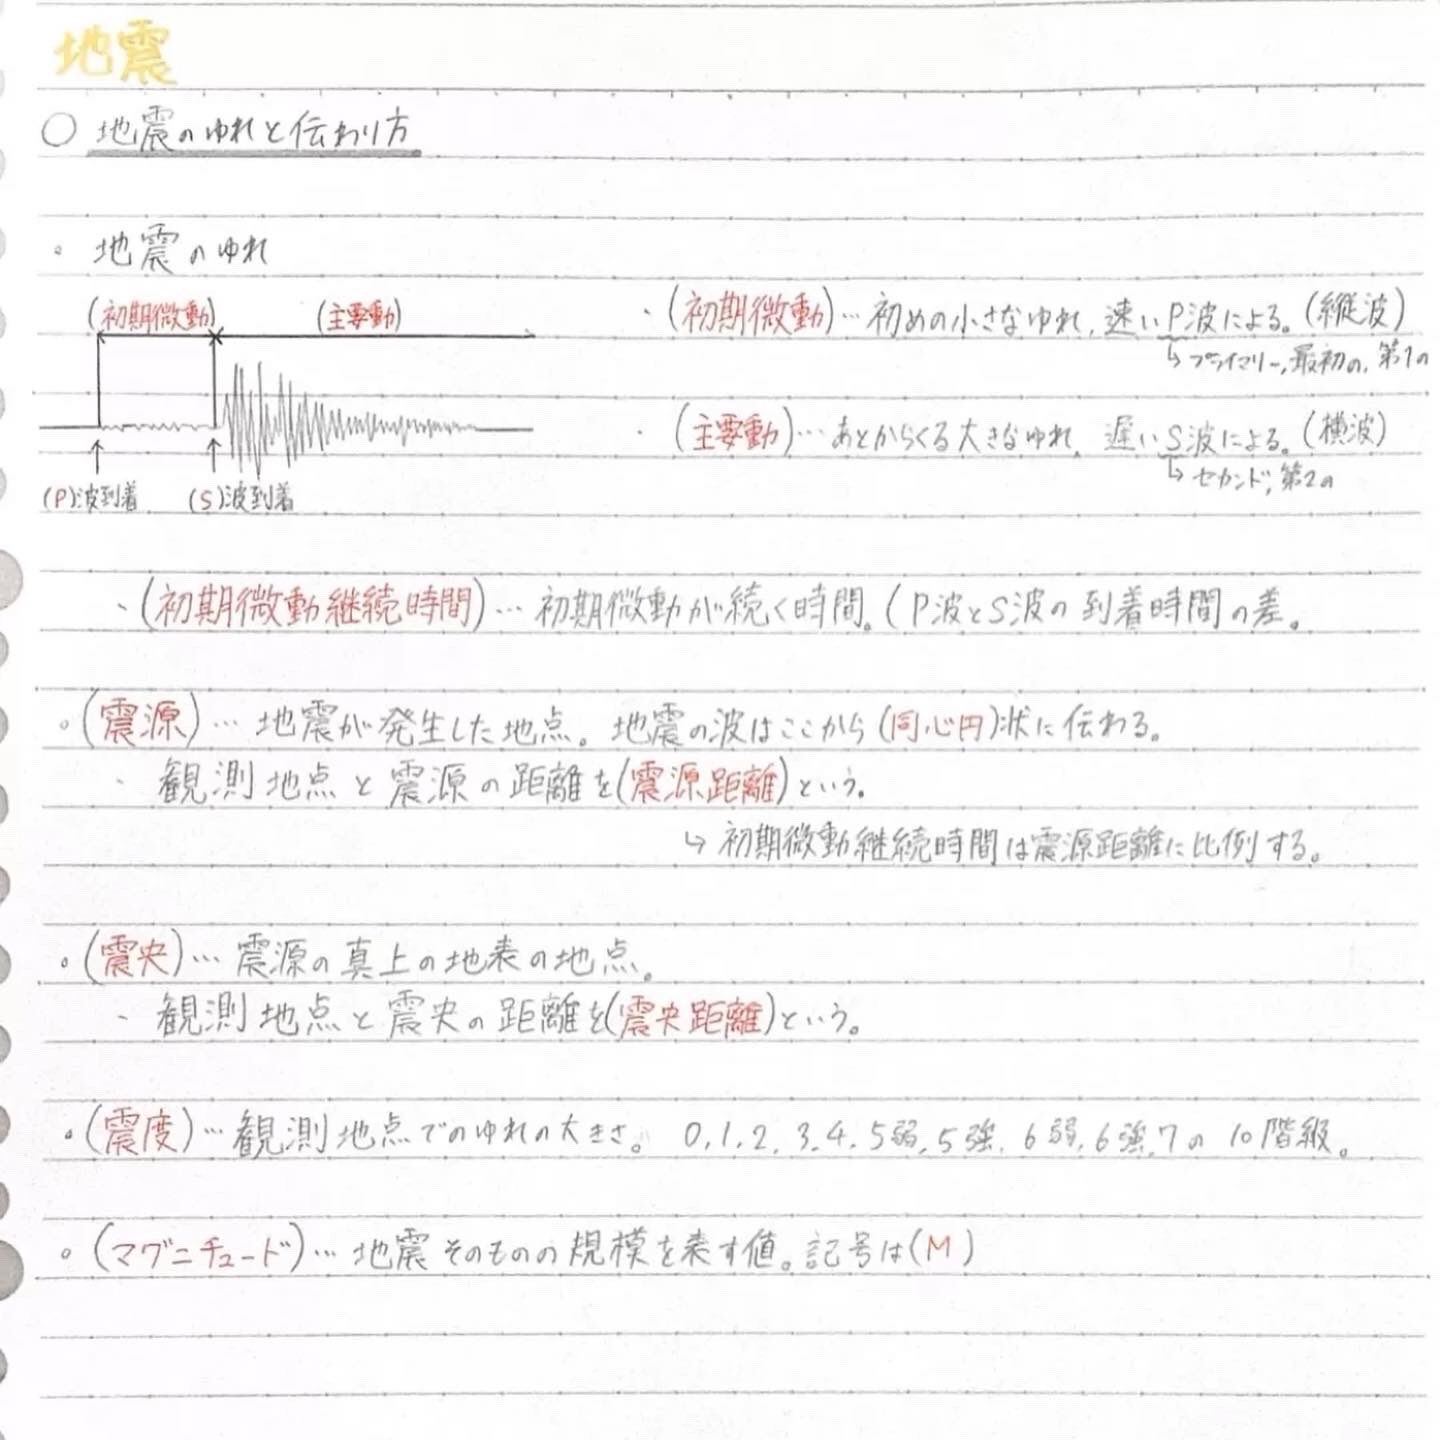 地震
○ 地震のゆれと伝わり方
。地震のゆれ
(初期微動) (主要動)
(P)波到着 (S)波到着
・(初期微動)…初めの小さなゆれ、速いP波による。(縦波)
↳プライマリー,最初の,第1の
・(主要動)…あとからくる大きなゆれ、遅いS波による。(横波)
↳セカンド,第2の
、(初期微動継続時間)…初期微動が続く時間。(P波とS波の到着時間の差。
。(震源)…地震が発生した地点。地震の波はここから(同心円)状に伝わる。
、観測地点と震源の距離を(震源距離)という。
↳初期微動継続時間は震源距離に比例する。
。(震央)…震源の真上の地表の地点。
、観測地点と震央の距離を(震央距離)という。
。(震度)…観測地点でのゆれの大きさ。 0,1,2,3,4,5弱,5強,6弱,6強,7の10階級。
。(マグニチュード)…地震そのものの規模を表す値。記号は(M)